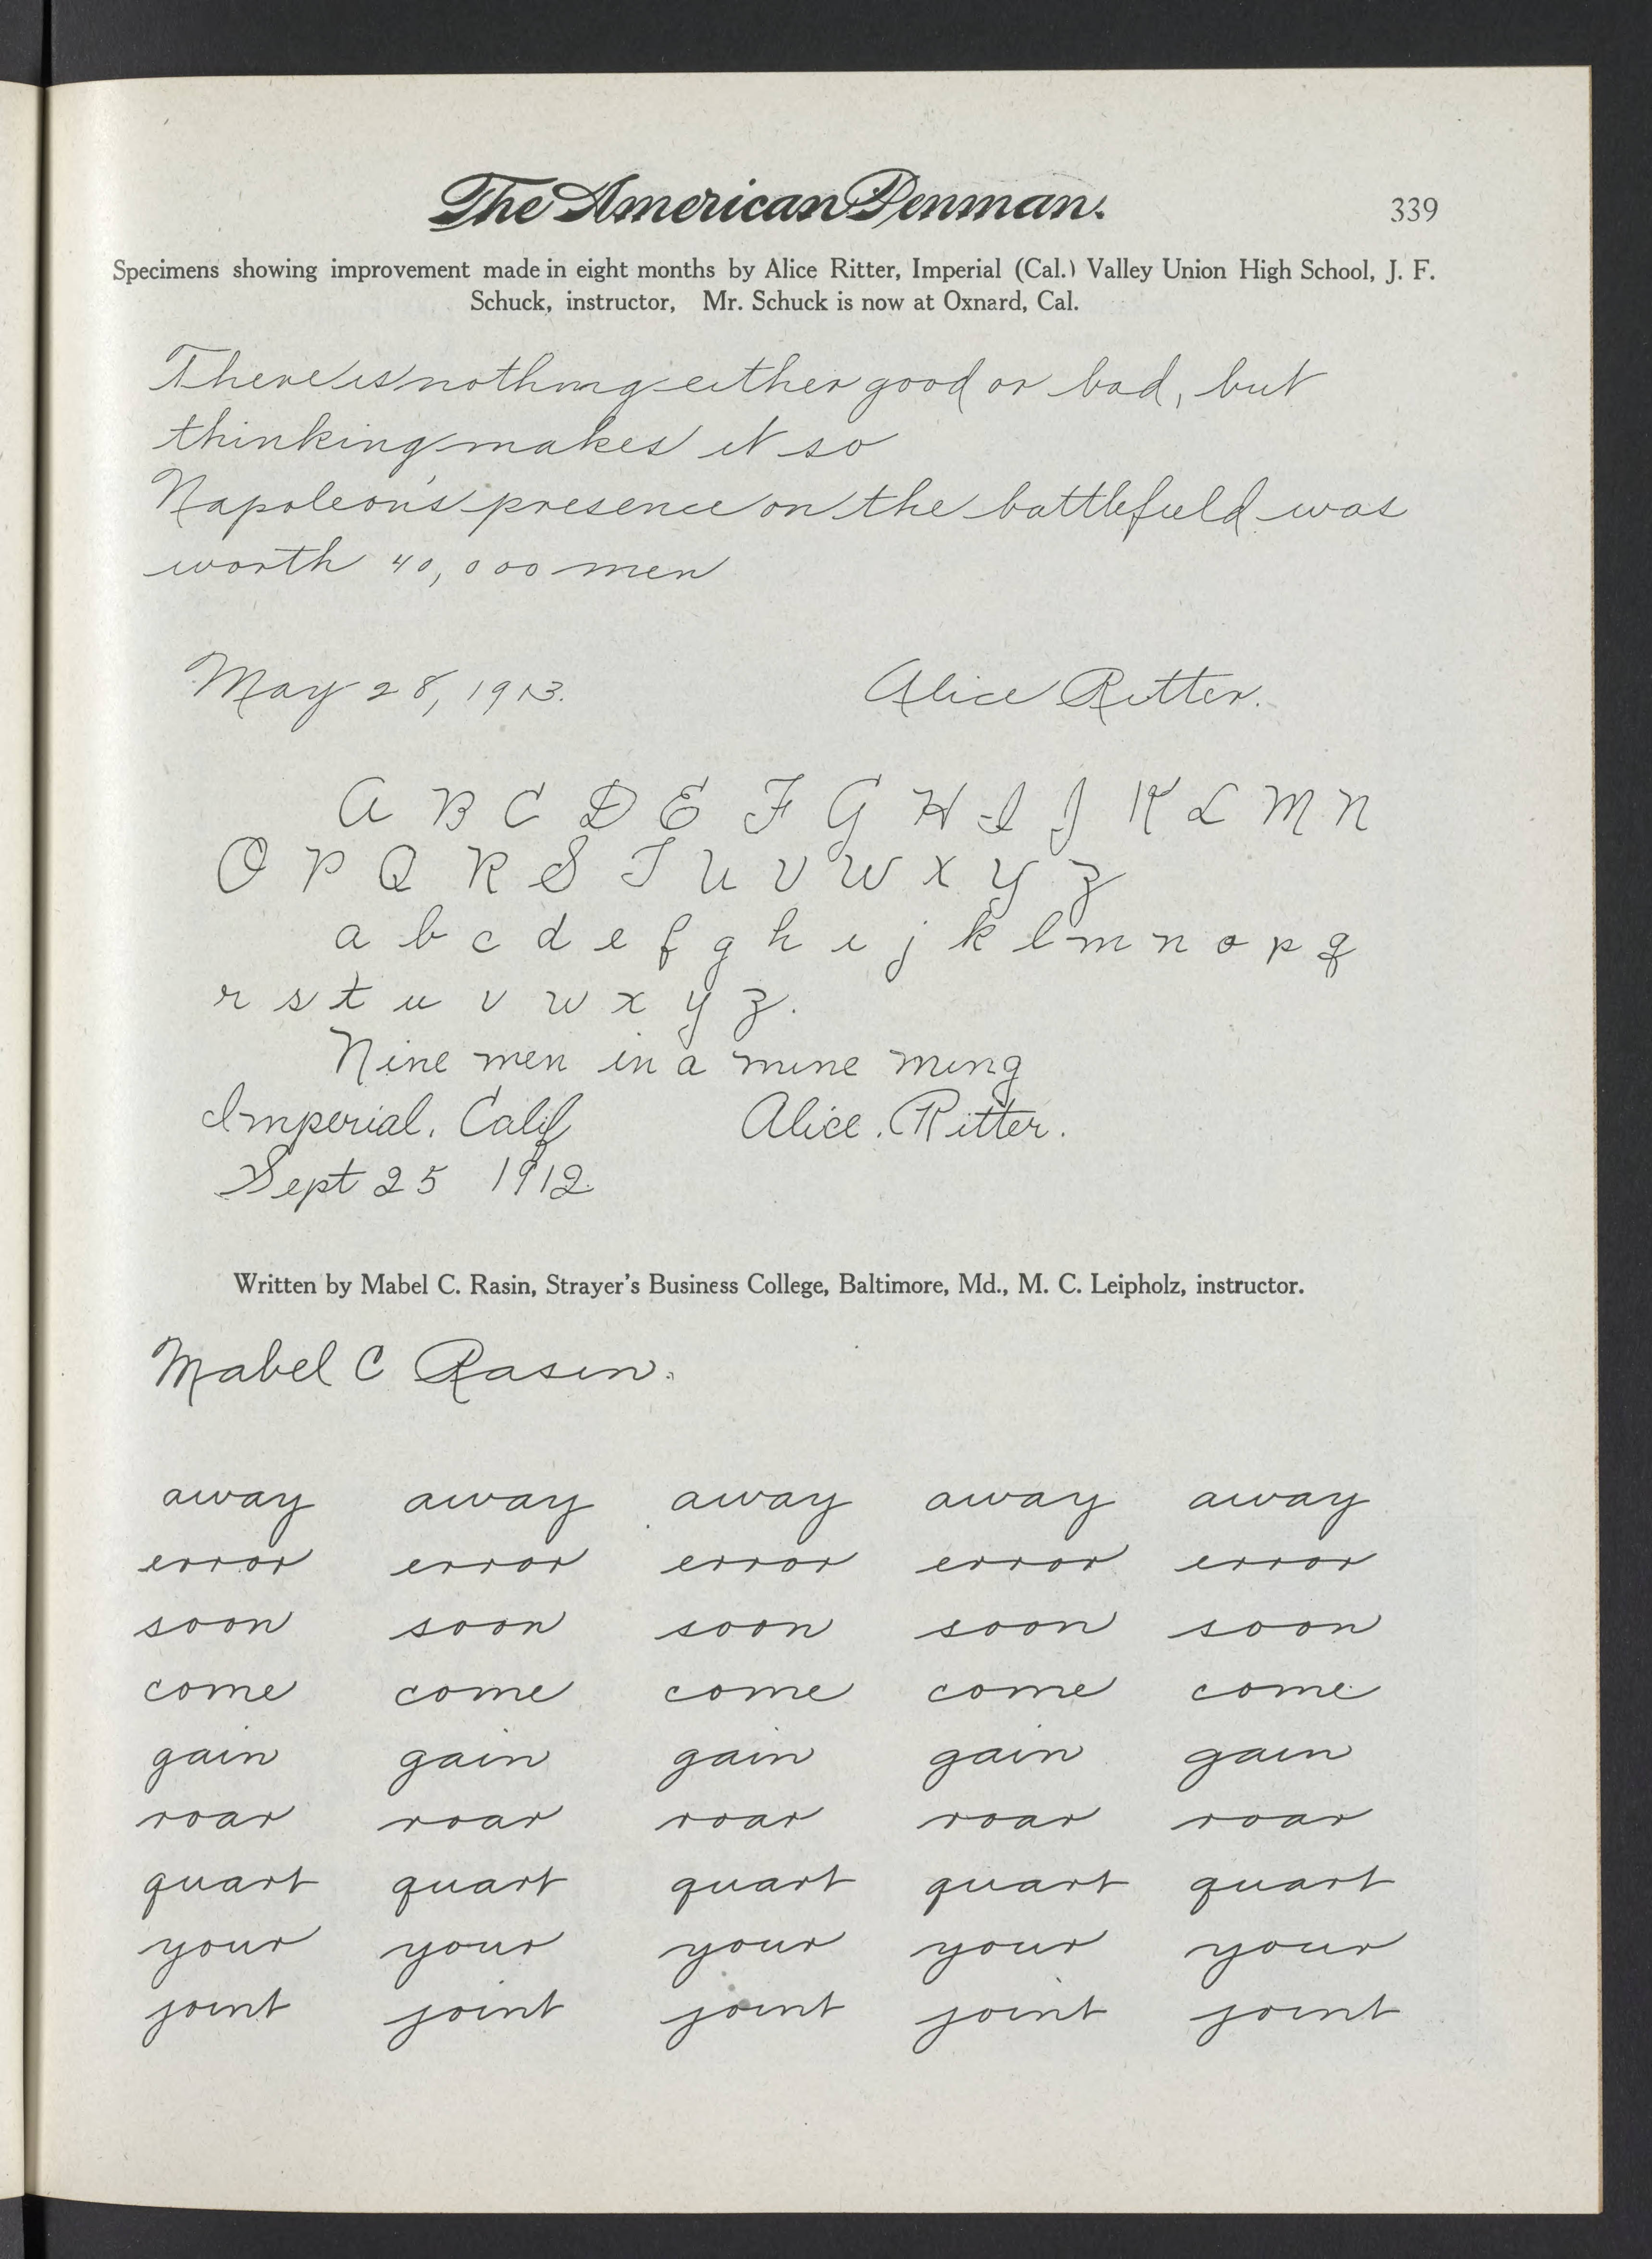 The American Penman. 339
Specimens showing improvement made in eight months by Alice Ritter, Imperial (Cal.) Valley Union High School, J. F.
Schuck, instructor, Mr. Schuck is now at Oxnard, Cal.
There is nothing either good or bad, but
thinking makes it so
Napoleon's presence on the battlefield was
worth 40,000 men
May 28, 1913. Alice Ritter.
A B C D E F G H I J K L M N
O P Q R S T U V W X Y Z
a b c d e f g h i j k l m n o p q
r s t u v w x y z.
Nine men in a mine ming
Imperial. Calif Alice. Ritter.
Sept 25 1912.
Written by Mabel C. Rasin, Strayer's Business College, Baltimore, Md., M. C. Leipholz, instructor.
Mabel C Rasin.
away away away away away
error error error error error
soon soon soon soon soon
come come come come come
gain gain gain gain gain
roar roar roar roar roar
quart quart quart quart quart
your your your your your
joint joint joint joint joint